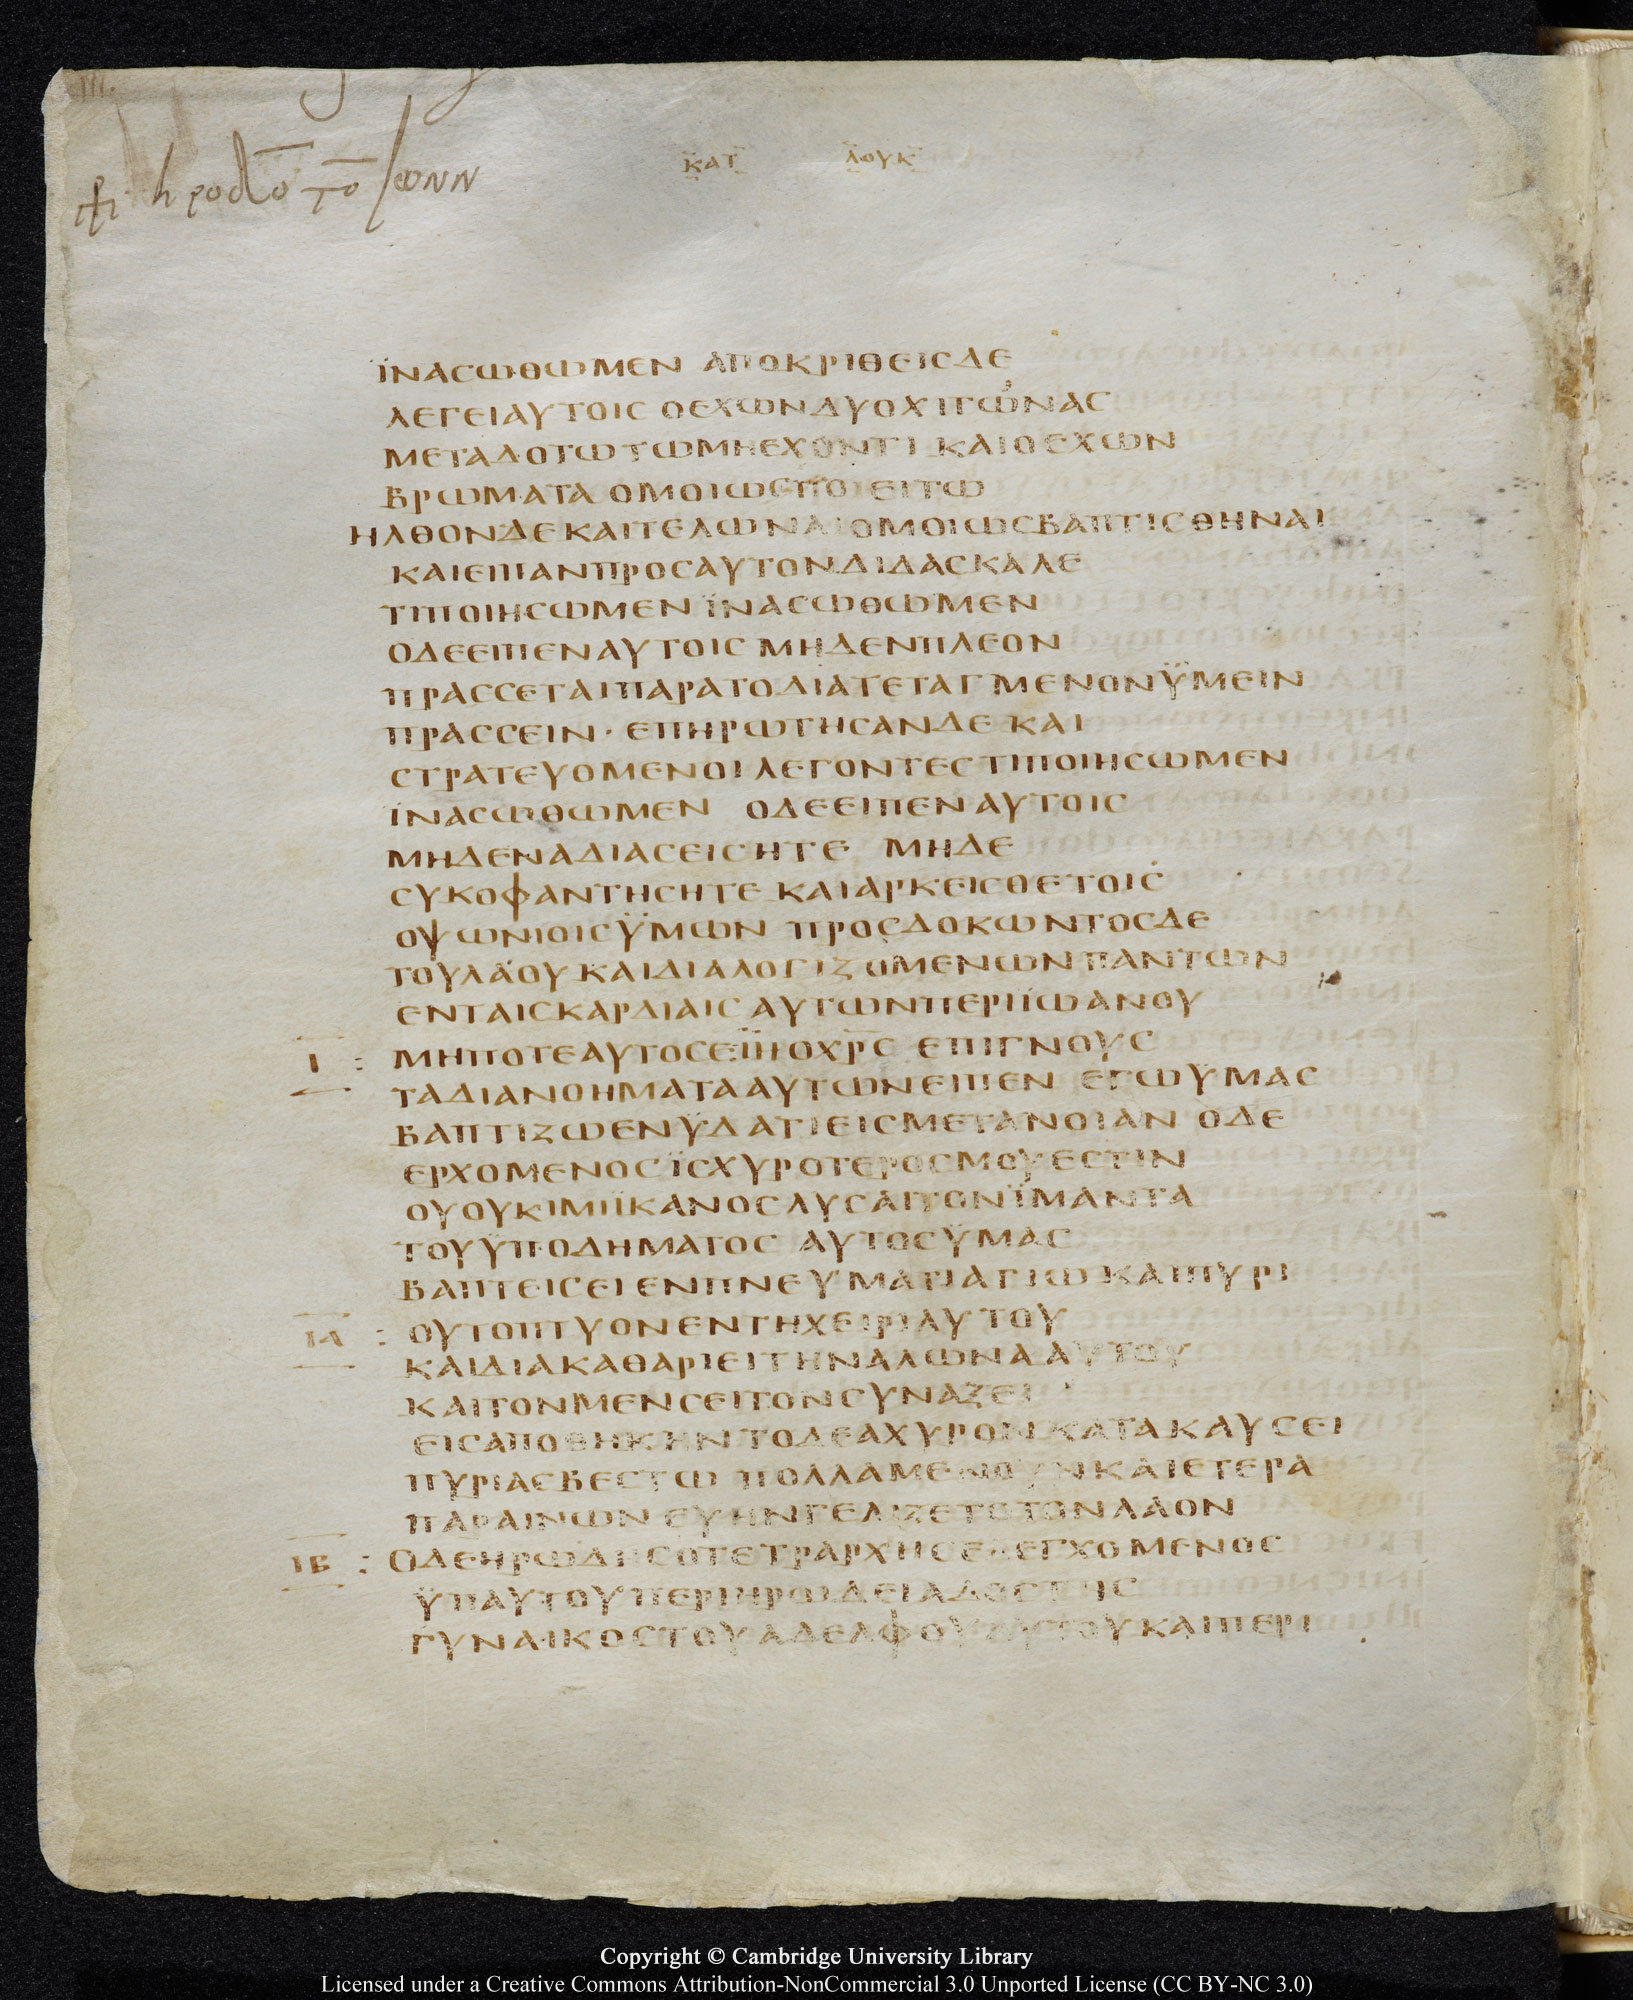 ΚΑΤ ΛΟΥΚ
ΪΝΑCΩΘΩΜΕΝ ΑΠΟΚΡΙΘΕΙCΔΕ
ΛΕΓΕΙΑΥΤΟΙC ΟΕΧΩΝΔΥΟΧΙΤΩΝΑC
ΜΕΤΑΔΟΤΩΤΩΜΗΕΧΟΝΤΙ ΚΑΙΟΕΧΩΝ
ΒΡΩΜΑΤΑ ΟΜΟΙΩCΠΟΙΕΙΤΩ
ΗΛΘΟΝΔΕΚΑΙΤΕΛΩΝΑΙΟΜΟΙΩCΒΑΠΤΙCΘΗΝΑΙ
ΚΑΙΕΙΠΑΝΠΡΟCΑΥΤΟΝΔΙΔΑCΚΑΛΕ
ΤΙΠΟΙΗCΩΜΕΝ ΪΝΑCΩΘΩΜΕΝ
ΟΔΕΕΙΠΕΝΑΥΤΟΙC ΜΗΔΕΝΠΛΕΟΝ
ΠΡΑCCΕΤΑΙΠΑΡΑΤΟΔΙΑΤΕΤΑΓΜΕΝΟΝΫΜΕΙΝ
ΠΡΑCCΕΙΝ · ΕΠΗΡΩΤΗCΑΝΔΕ ΚΑΙ
CΤΡΑΤΕΥΟΜΕΝΟΙ ΛΕΓΟΝΤΕC ΤΙΠΟΙΗCΩΜΕΝ
ΪΝΑCΩΘΩΜΕΝ ΟΔΕΕΙΠΕΝΑΥΤΟΙC
ΜΗΔΕΝΑΔΙΑCΕΙCΗΤΕ ΜΗΔΕ
CΥΚΟΦΑΝΤΗCΗΤΕ ΚΑΙΑΡΚΕΙCΘΕΤΟΙC
ΟΨΩΝΙΟΙCΫΜΩΝ ΠΡΟCΔΟΚΩΝΤΟCΔΕ
ΤΟΥΛΑΟΥΚΑΙΔΙΑΛΟΓΙΖΟΜΕΝΩΝΠΑΝΤΩΝ
ΕΝΤΑΙCΚΑΡΔΙΑΙC ΑΥΤΩΝΠΕΡΙΪΩΑΝΟΥ
Ι : ΜΗΠΟΤΕΑΥΤΟCΕΙΗΟΧΡ̅C̅ ΕΠΙΓΝΟΥC
ΤΑΔΙΑΝΟΗΜΑΤΑΑΥΤΩΝΕΙΠΕΝ ΕΓΩΫΜΑC
ΒΑΠΤΙΖΩΕΝΫΔΑΤΙΕΙCΜΕΤΑΝΟΙΑΝ ΟΔΕ
ΕΡΧΟΜΕΝΟCΪCΧΥΡΟΤΕΡΟCΜΟΥΕCΤΙΝ
ΟΥΟΥΚΙΜΙΪΚΑΝΟCΛΥCΑΙΤΟΝΪΜΑΝΤΑ
ΤΟΥΫΠΟΔΗΜΑΤΟC ΑΥΤΟCΫΜΑC
ΒΑΠΤΕΙCΕΙ ΕΝΠΝΕΥΜΑΤΙΑΓΙΩ ΚΑΙΠΥΡΙ
ΙΑ : ΟΥΤΟΠΤΥΟΝΕΝΤΗΧΕΙΡΙΑΥΤΟΥ
ΚΑΙΔΙΑΚΑΘΑΡΙΕΙΤΗΝΑΛΩΝΑΑΥΤΟΥ
ΚΑΙΤΟΝΜΕΝCΕΙΤΟΝCΥΝΑΖΕΙ
ΕΙCΑΠΟΘΗΚΗΝΤΟΔΕΑΧΥΡΟΝ ΚΑΤΑΚΑΥCΕΙ
ΠΥΡΙΑCΒΕCΤΩ ΠΟΛΛΑΜΕΝΟΥΝΚΑΙΕΤΕΡΑ
ΠΑΡΑΙΝΩΝ ΕΥΗΝΓΕΛΙΖΕΤΟΤΟΝΛΑΟΝ
ΙΒ : ΟΔΕΗΡΩΔΗCΟΤΕΤΡΑΡΧΗCΕΛΕΓΧΟΜΕΝΟC
ΫΠΑΥΤΟΥΠΕΡΙΗΡΩΔΕΙΑΔΟCΤΗC
ΓΥΝΑΙΚΟCΤΟΥΑΔΕΛΦΟΥΑΥΤΟΥΚΑΙΠΕΡΙ
Copyright © Cambridge University Library
Licensed under a Creative Commons Attribution-NonCommercial 3.0 Unported License (CC BY-NC 3.0)